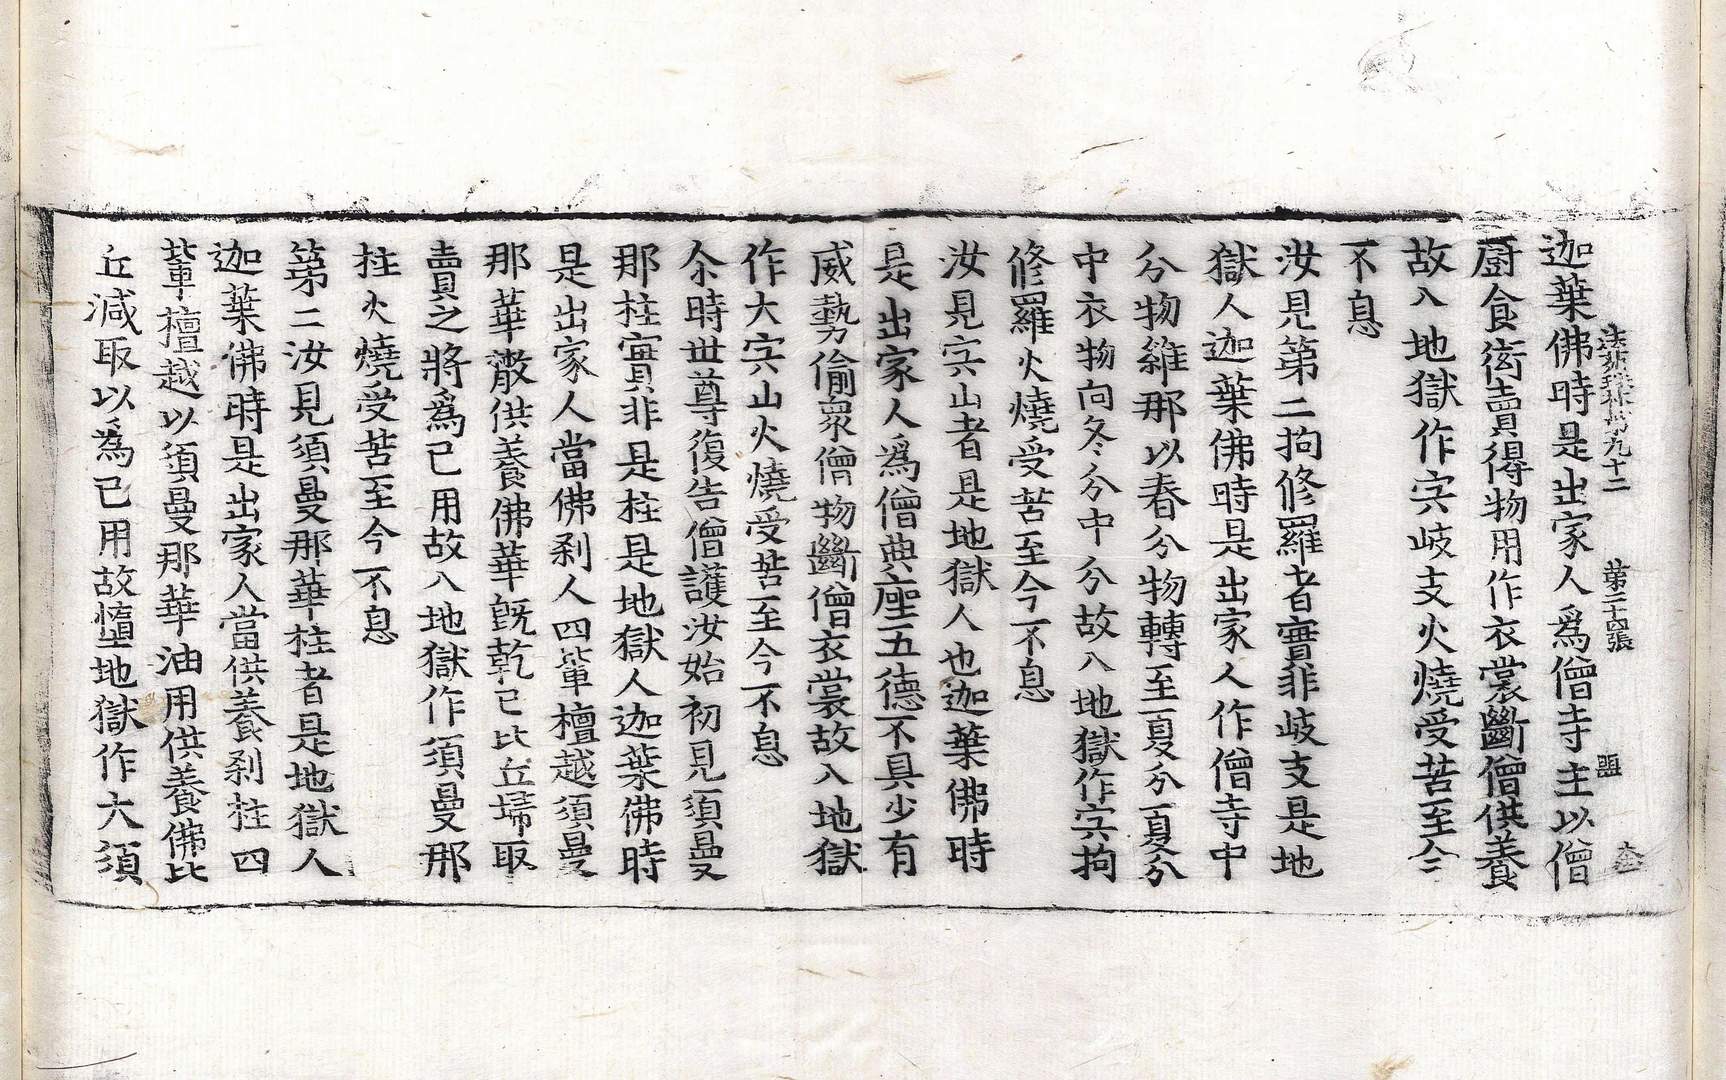 法苑珠林第九十二　第二十四張　盟
迦葉佛時是出家人爲僧寺主以僧
厨食衒賣得物用作衣裳斷僧供養
故入地獄作宍岐支火燒受苦至今
不息
汝見第二拘修羅者實非岐支是地
獄人迦葉佛時是出家人作僧寺中
分物維那以春分物轉至夏分夏分
中衣物向冬分中分故入地獄作宍拘
修羅火燒受苦至今不息
汝見宍山者是地獄人也迦葉佛時
是出家人爲僧典座五德不具少有
威勢偷眾僧物斷僧衣裳故入地獄
作大宍山火燒受苦至今不息
尒時世尊復告僧護汝始初見須曼
那柱實非是柱是地獄人迦葉佛時
是出家人當佛刹人四輩檀越須曼
那華散供養佛華旣乾已比丘掃取
賣之將爲已用故入地獄作須曼那
柱火燒受苦至今不息
第二汝見須曼那華柱者是地獄人
迦葉佛時是出家人當供養刹柱四
輩檀越以須曼那華油用供養佛比
丘減取以爲已用故墮地獄作大須